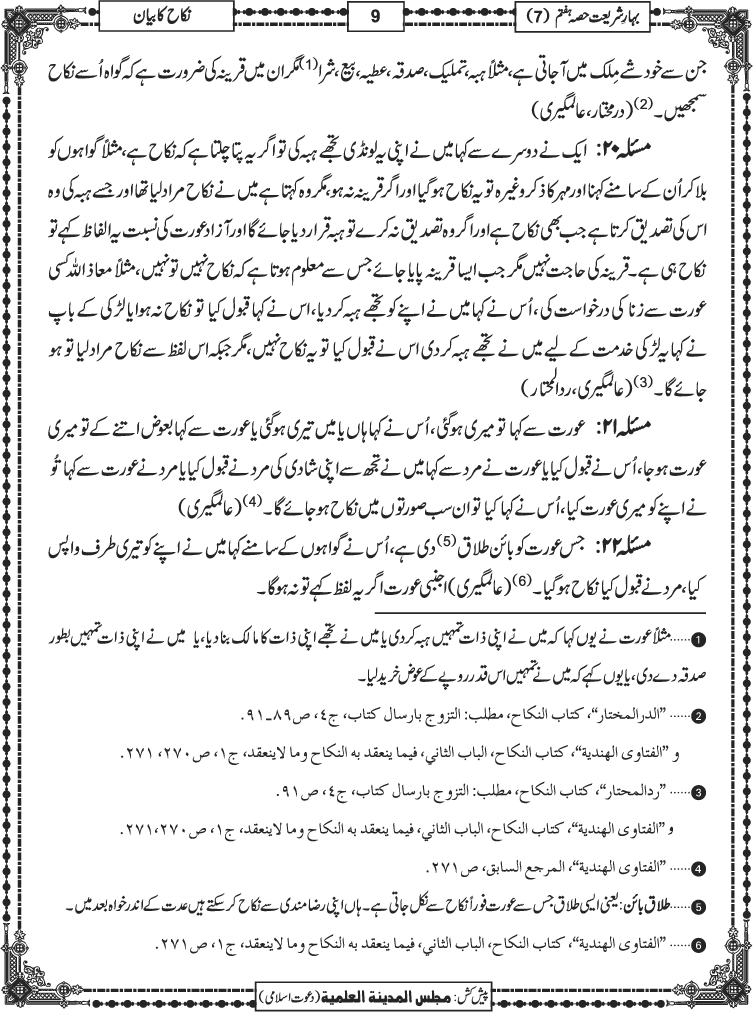 بہارِ شریعت حصہ ہفتم (7)
9
نکاح کا بیان
جن سے خود شے مِلک میں آجاتی ہے، مثلاً ہبہ، تملیک، صدقہ، عطیہ، بیع، شرا(1) مگر ان میں قرینہ کی ضرورت ہے کہ گواہ اُسے نکاح
سمجھیں۔(2) (درمختار، عالمگیری)
مسئلہ ۲۰: ایک نے دوسرے سے کہا میں نے اپنی یہ لونڈی تجھے ہبہ کی تو اگر یہ پتا چلتا ہے کہ نکاح ہے، مثلاً گواہوں کو
بلا کر اُن کے سامنے کہنا اور مہر کا ذکر وغیرہ تو یہ نکاح ہوگیا اور اگر قرینہ نہ ہو، مگر وہ کہتا ہے میں نے نکاح مراد لیا تھا اور جسے ہبہ کی وہ
اس کی تصدیق کرتا ہے جب بھی نکاح ہے اور اگر وہ تصدیق نہ کرے تو ہبہ قرار دیا جائے گا اور آزاد عورت کی نسبت یہ الفاظ کہے تو
نکاح ہی ہے۔ قرینہ کی حاجت نہیں مگر جب ایسا قرینہ پایا جائے جس سے معلوم ہوتا ہے کہ نکاح نہیں تو نہیں، مثلاً معاذ اللہ کسی
عورت سے زنا کی درخواست کی، اُس نے کہا میں نے اپنے کو تجھے ہبہ کردیا، اس نے کہا قبول کیا تو نکاح نہ ہوا یا لڑکی کے باپ
نے کہا یہ لڑکی خدمت کے لیے میں نے تجھے ہبہ کردی اس نے قبول کیا تو یہ نکاح نہیں، مگر جبکہ اس لفظ سے نکاح مراد لیا تو ہو
جائے گا۔(3) (عالمگیری، ردالمحتار)
مسئلہ ۲۱: عورت سے کہا تو میری ہوگئی، اُس نے کہا ہاں یا میں تیری ہوگئی یا عورت سے کہا بعوض اتنے کے تو میری
عورت ہوجا، اُس نے قبول کیا یا عورت نے مرد سے کہا میں نے تجھ سے اپنی شادی کی مرد نے قبول کیا یا مرد نے عورت سے کہا تُو
نے اپنے کو میری عورت کیا، اُس نے کہا کیا تو ان سب صورتوں میں نکاح ہوجائے گا۔(4) (عالمگیری)
مسئلہ ۲۲: جس عورت کو بائن طلاق(5) دی ہے، اُس نے گواہوں کے سامنے کہا میں نے اپنے کو تیری طرف واپس
کیا، مرد نے قبول کیا نکاح ہوگیا۔(6) (عالمگیری) اجنبی عورت اگر یہ لفظ کہے تو نہ ہوگا۔
1 ......مثلاً عورت نے یوں کہا کہ میں نے اپنی ذات تمہیں ہبہ کردی یا میں نے تجھے اپنی ذات کا مالک بنادیا، یا میں نے اپنی ذات تمہیں بطور
صدقہ دے دی، یا یوں کہے کہ میں نے تمہیں اس قدر روپے کے عوض خرید لیا۔
2 ......"الدرالمختار"، کتاب النکاح، مطلب: التزوج بارسال کتاب، ج٤، ص٨٩۔٩١.
و "الفتاوی الھندیة"، کتاب النکاح، الباب الثاني، فیما ینعقد به النکاح وما لاینعقد، ج١، ص٢٧٠، ٢٧١.
3 ......"ردالمحتار"، کتاب النکاح، مطلب: التزوج بارسال کتاب، ج٤، ص٩١.
و "الفتاوی الھندیة"، کتاب النکاح، الباب الثاني، فیما ینعقد به النکاح وما لاینعقد، ج١، ص٢٧٠،٢٧١.
4 ......"الفتاوی الھندیة"، المرجع السابق، ص٢٧١.
5 ......طلاق بائن: یعنی ایسی طلاق جس سے عورت فوراً نکاح سے نکل جاتی ہے۔ ہاں اپنی رضامندی سے نکاح کرسکتے ہیں عدت کے اندر خواہ بعد میں۔
6 ......"الفتاوی الھندیة"، کتاب النکاح، الباب الثاني، فیما ینعقد به النکاح وما لاینعقد، ج١، ص٢٧١.
پیش کش: مجلس المدینة العلمیة (دعوت اسلامی)